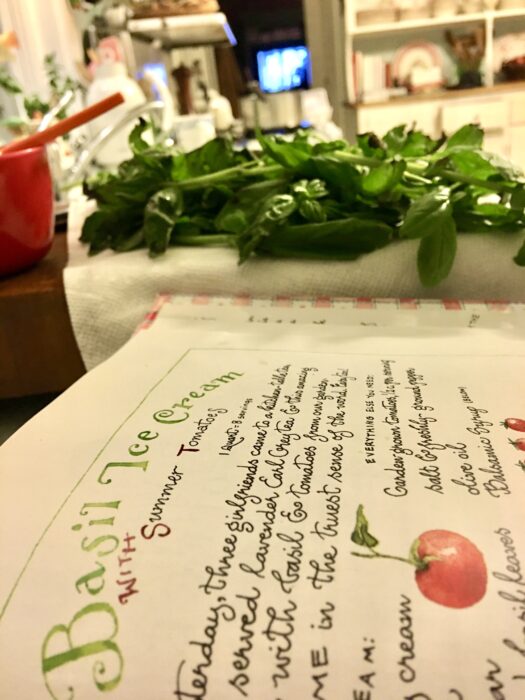 Basil Ice Cream
WITH Summer Tomatoes
1 quart · 8 servings
terday, three girlfriends came to a kitchen table tea
served lavender Earl Grey tea & this amazing
with basil & tomatoes from our garden
ME in the truest sense of the word.
EAM:
cream
EVERYTHING ELSE YOU NEED:
Garden-grown tomatoes,
salt & freshly ground pepper
Olive oil
Balsamic Syrup
basil leaves